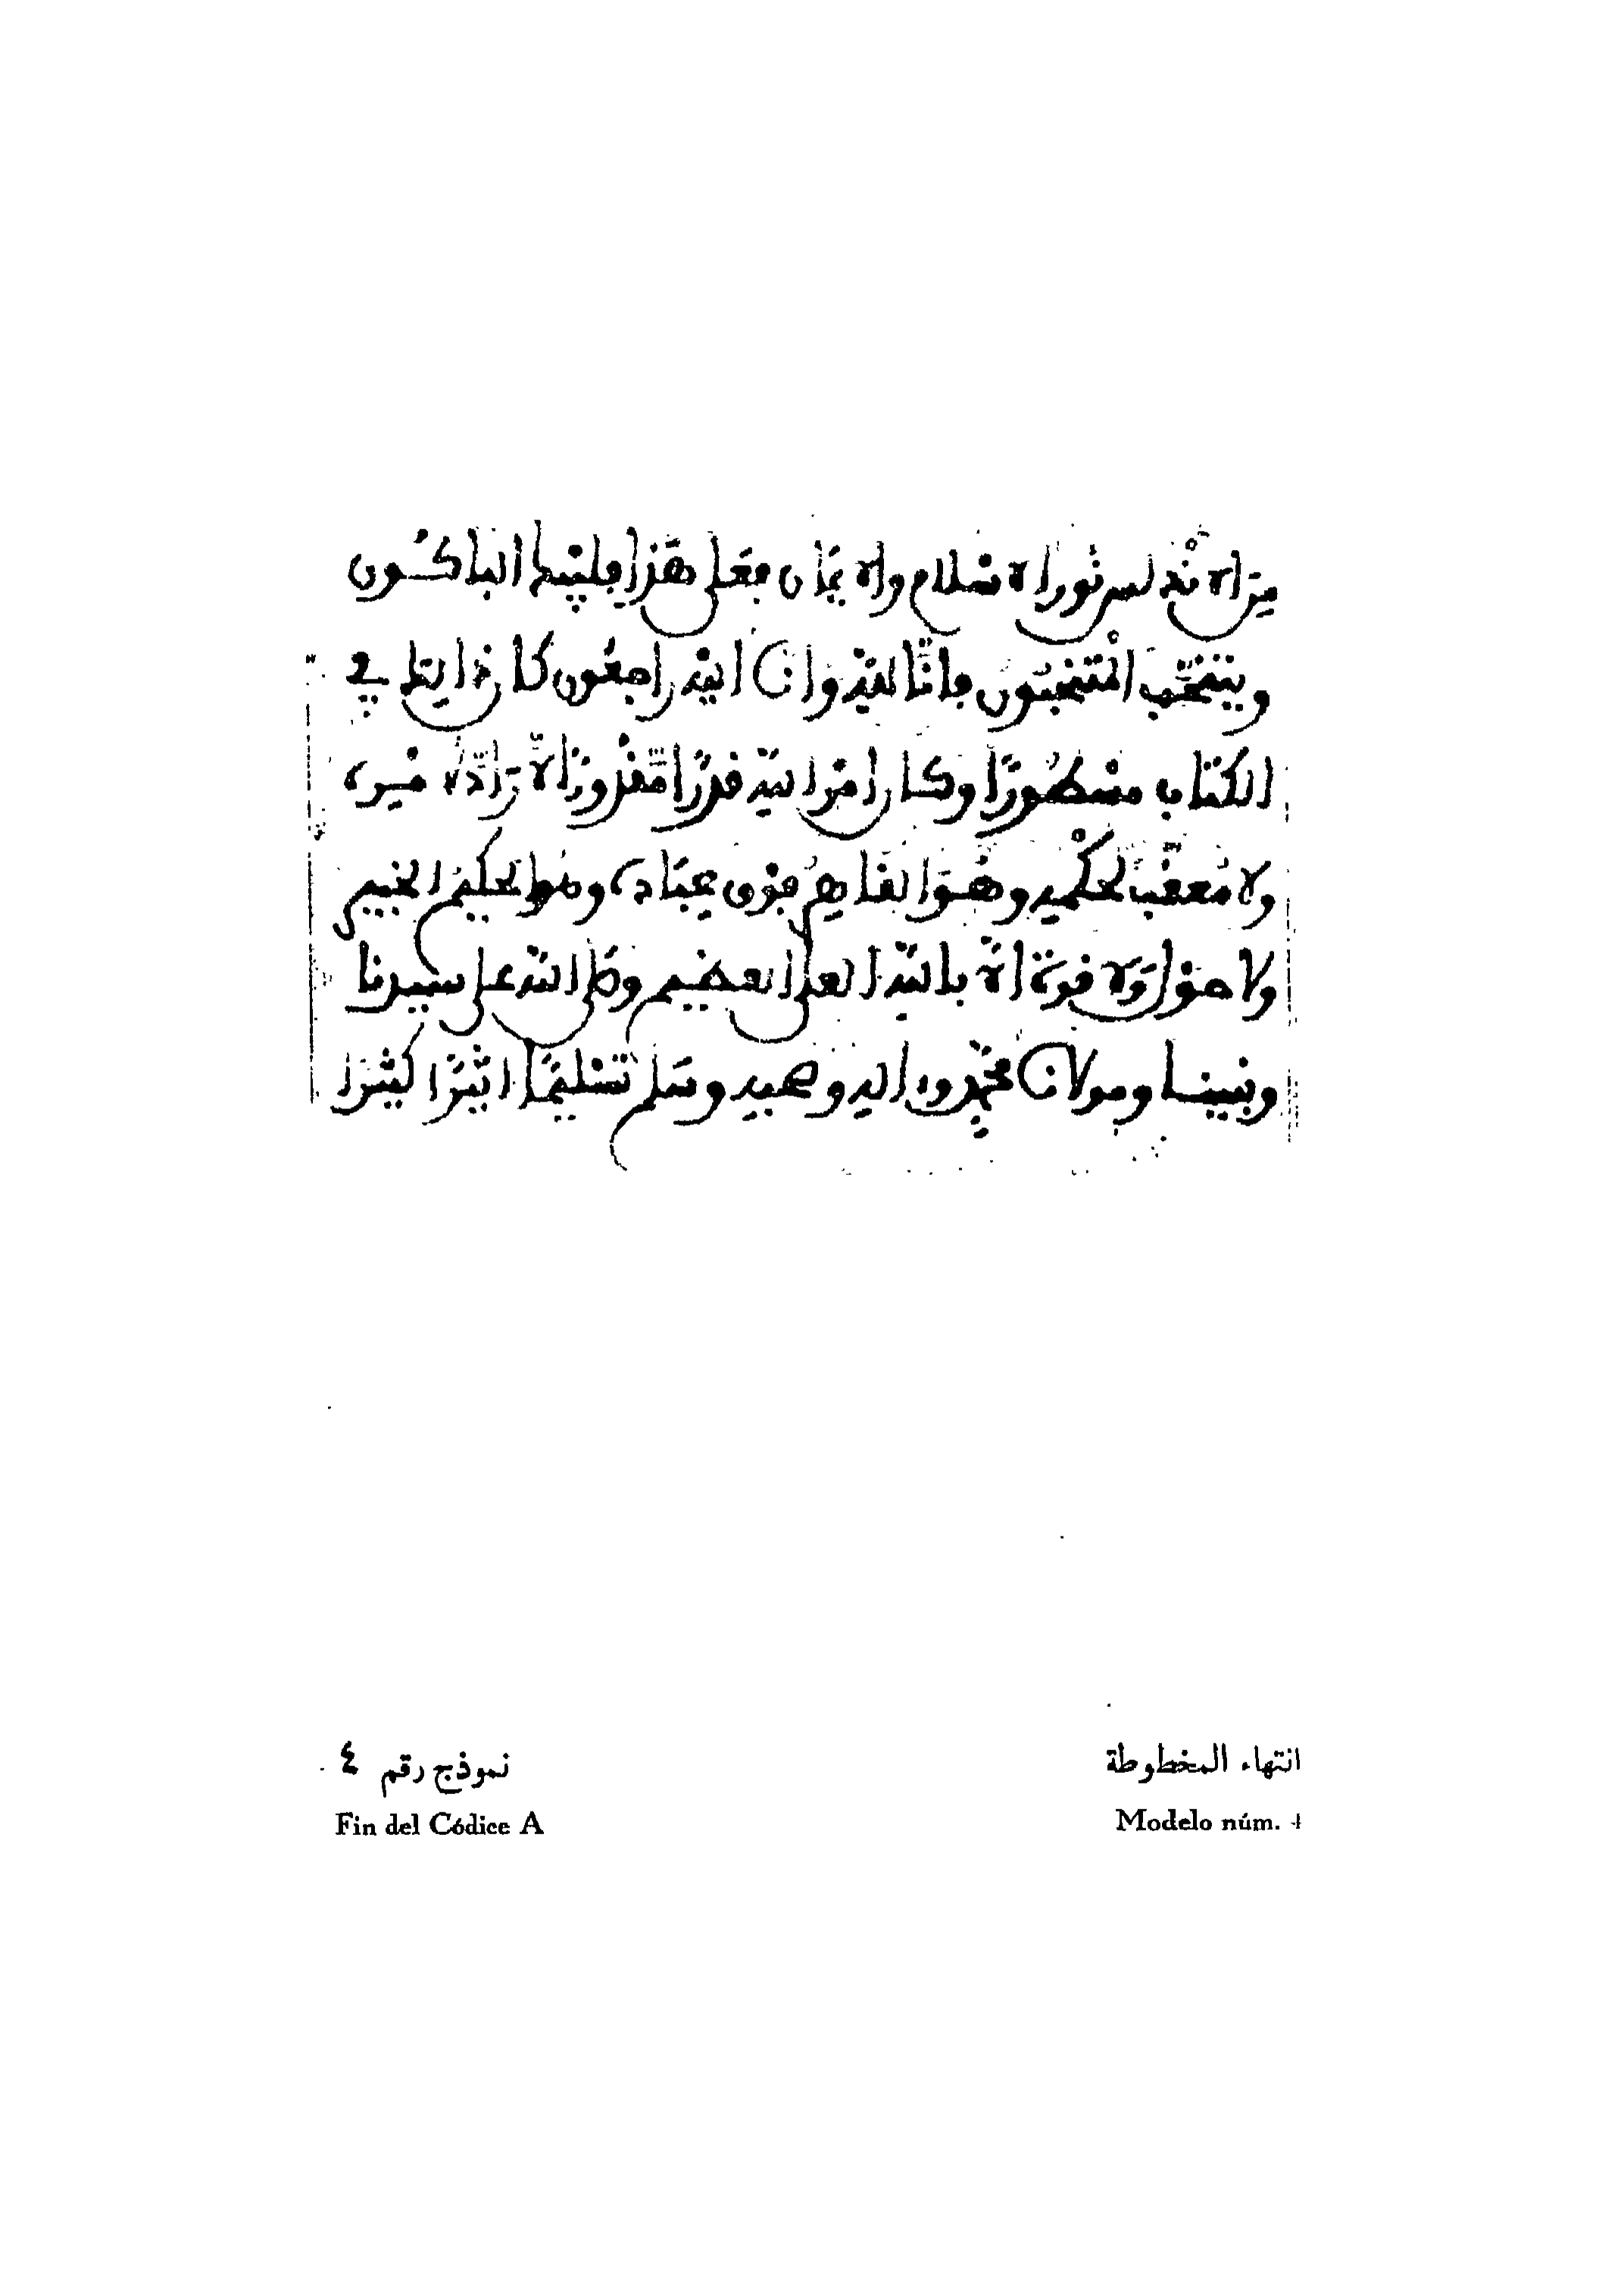 من الاندلس نور الاسلام والايمان فعلى هذا فليبك الباكون
وينتحب المنتحبون فانا لله وانا اليه راجعون كان ذالك في
الكتاب مسطورًا وكان امر الله قدرًا مقدورًا لا رادّ لامره
ولا معقّب لحكمه وهو القاهر فوق عباده وهو الحكيم الخبير
ولا حول ولا قوة الا بالله العلي العظيم وصلى الله على سيدنا
ونبينا ومولانا محمد واله وصحبه وسلم تسليمًا اثيرًا كثيرا
انتهاء المخطوطة نموذج رقم ٤
Fin del Códice A Modelo núm. 4